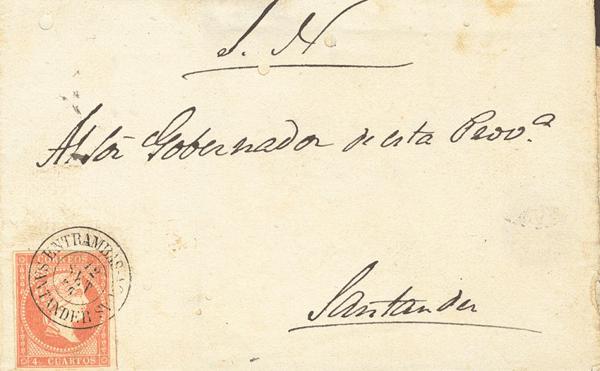 S. N
Al Sor Gobernador de esta Provª
Santander
ENTRAMBAS-
SANTANDER
12
CORREOS
4. CUARTOS